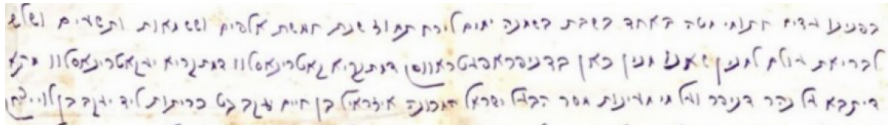 בפנינו עדים חתומי מטה באחד בשבת בשמנה ימים לירח תמוז שנת חמשת אלפים ושש מאות ותשעים ושלש
לבריאת עולם למנין שאנו מנין כאן בדניפראפעטראווסק דמתקריא קאטרינאסלוו דמתקריא יעקאטרינאסלוו מתא
דיתבא על נהר דניפר ועל מי מעינות מסר הבעל ישראל המכונה איזראיל בן חיים יעקב גט כריתות ליד יעקב בן